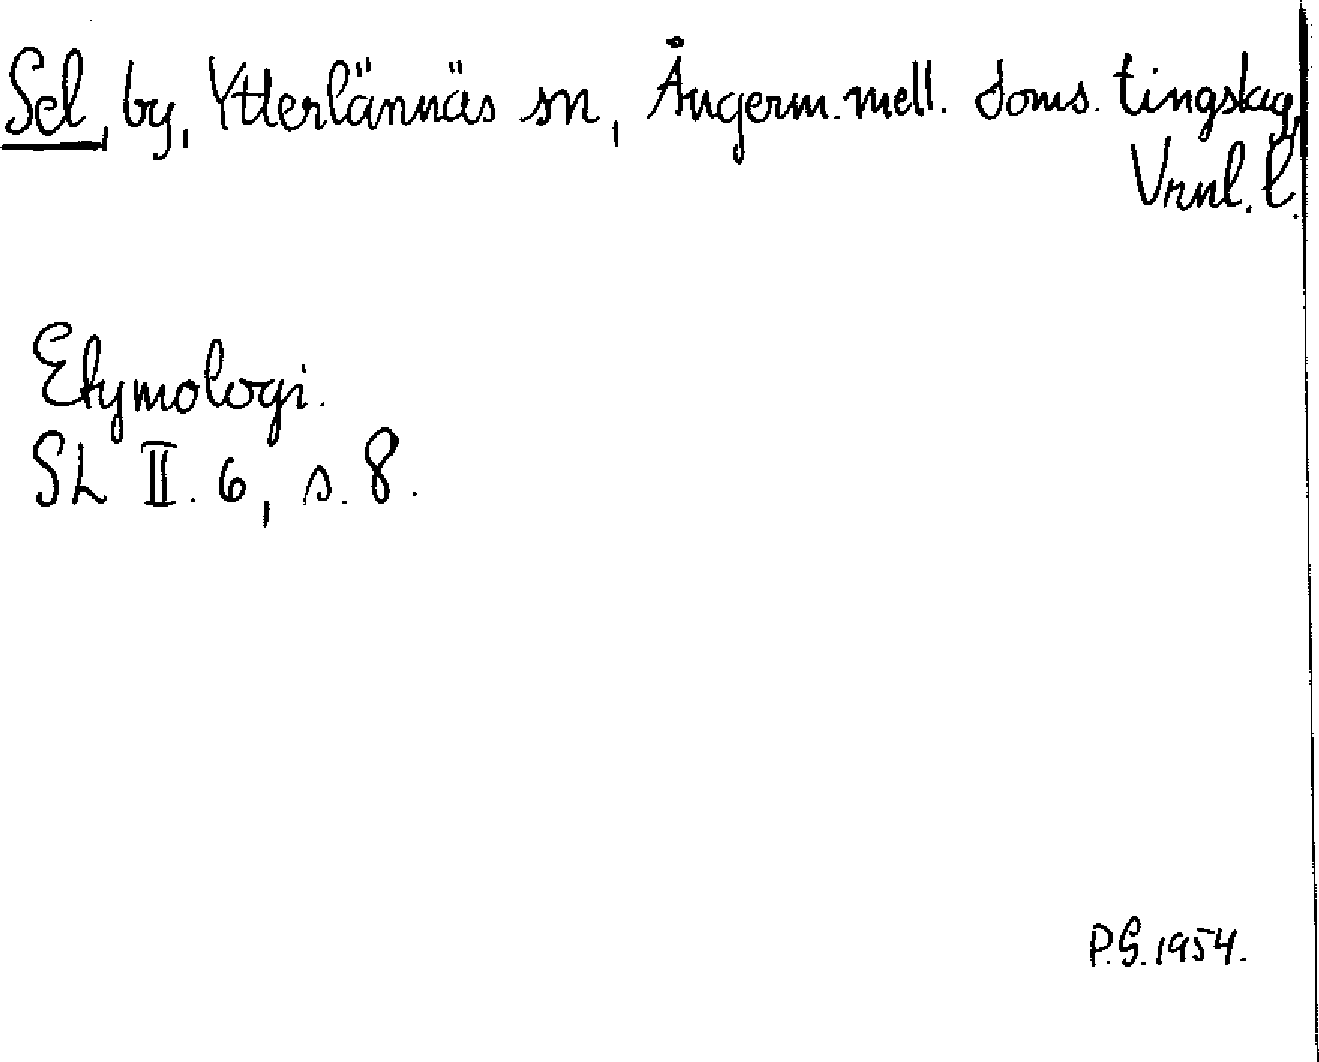 Sel, by, Ytterlännäs sn, Ångerm. mell. doms. tingslag,
Vrnl. l.
Etymologi.
SL II. 6, s. 8.
P.G. 1954.